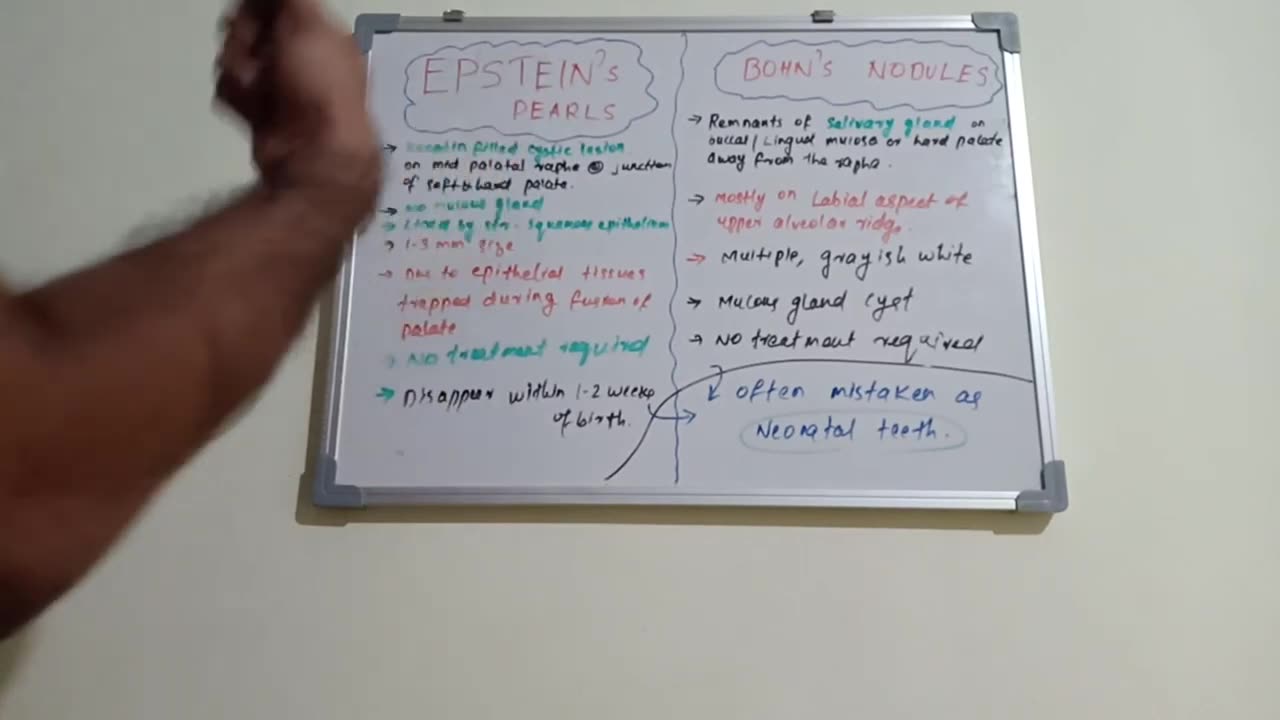 EPSTEIN's
PEARLS
→ Keratin filled cystic lesion
on mid palatal raphe @ junction
of soft & hard palate.
→ No mucous gland
→ Lined by str. squamous epithelium
→ 1-3 mm size
→ Due to epithelial tissues
trapped during fusion of
palate
→ No treatment required
→ Disappear within 1-2 weeks
of birth.
BOHN's NODULES
→ Remnants of salivary gland on
buccal/Lingual mucosa or hard palate
away from the raphe.
→ mostly on Labial aspect of
upper alveolar ridge.
→ Multiple, grayish white
→ Mucous gland cyst
→ NO treatment required
often mistaken as
Neonatal teeth.